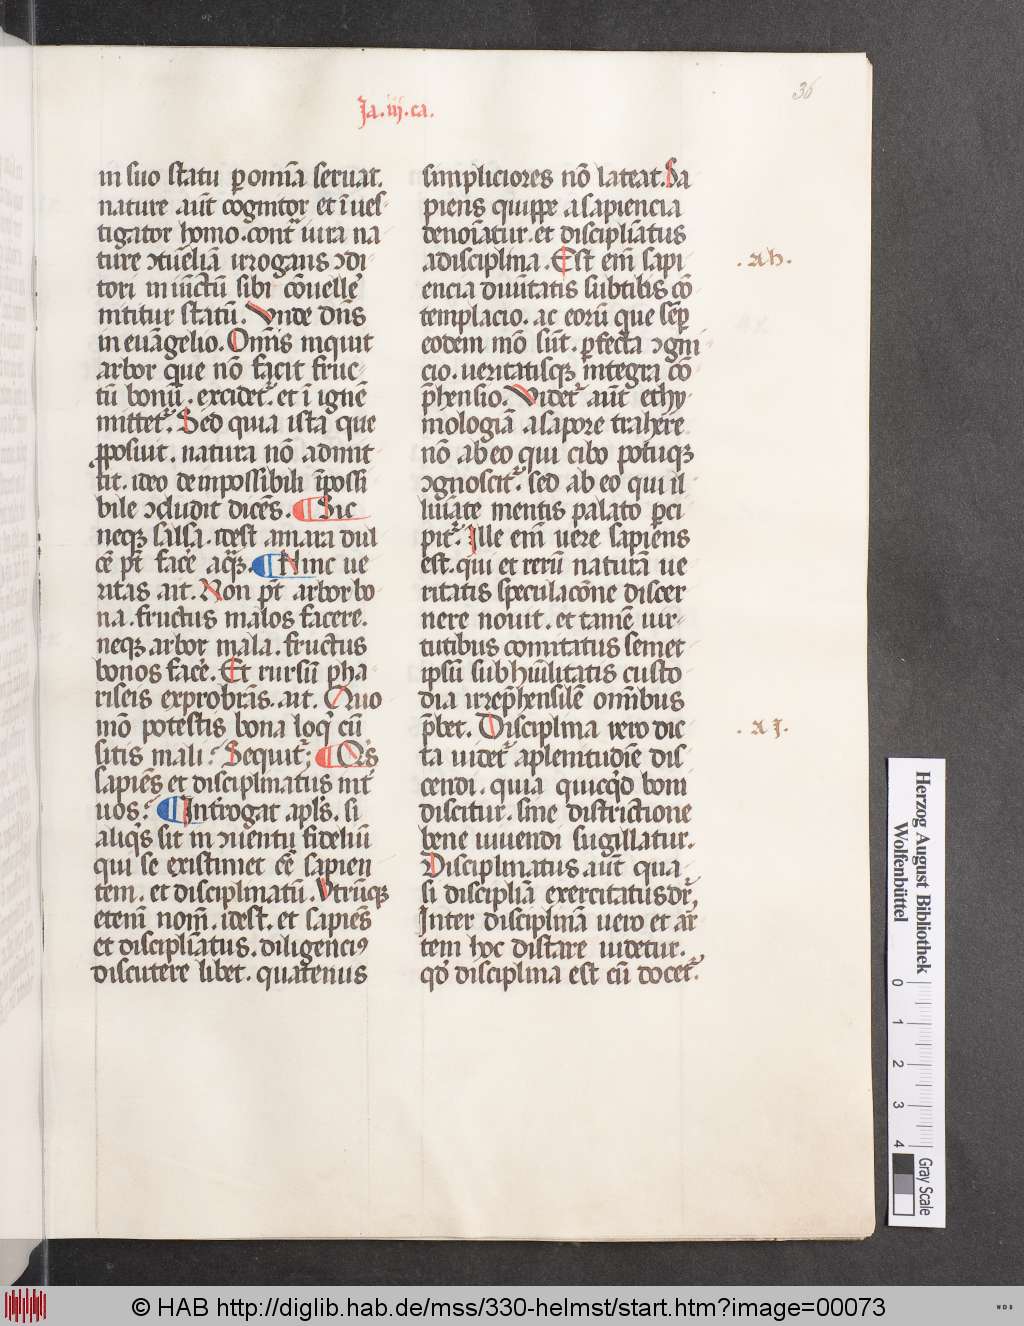 36
Ja.iij.ca.
in suo statu ꝑ om̄ia seruat.
nature aūt cōgnitor et īues
tigator homo. cont͛ uira na
ture ꝯtūeliā irrogans ꝯdi
tori iniūctū sibi cōuelle͛
nititur statū. Vnde dn̄s
in euāgelio. Om̄is inquit
arbor que nō facit fruc
tū bonū. excidet᷑. et ī ignē
mittet᷑. Sed quia ista que
ꝓposuit. natura nō admit
tit. ideo de impossibili īpossi
bile ꝯcludit dicēs. ¶ Sic
neqꝫ salsa. idest amara dul
cē pt̄ face͛ aq̄ꝫ. ¶ Hinc ue
ritas ait. Non pt̄ arbor bo
na. fructus malos facere.
neqꝫ arbor mala. fructus
bonos face͛. Et rursū pha
riseis exprobrās. ait. Quo
mō potestis bona loq͛ cū
sitis mali? Sequit᷑; ¶ Q͛s
sapiēs et disciplinatus int͛
uos? ¶ Int͛rogat apl's. si
aliq͛s sit in ꝯuentu fideliū
qui se existimet cē sapien
tem. et disciplinatū. Vtrūqꝫ
etenī noīm. idest. et sapiēs
et discipliātus. diligenciꝰ
discutere libet. quatenus
simpliciores nō lateat. Sa
piens quippe a sapiencia
denoīatur. et discipliātus
a disciplina. Est enī sapi
encia diuinitatis subtilis cō
templacio. ac eorū que semꝑ
eodem mō sūt. ꝑfecta ꝯgni
cio. ueritatisqꝫ integra cō
p̄hensio. Videt᷑ aūt ethy
mologiā a sapore trahere
nō ab eo qui cibo potuqꝫ
ꝯgnoscit᷑. sed ab eo qui il
luīate mentis palato ꝑci
pit᷑. Ille enī uere sapiens
est. qui et rerū naturā ue
ritatis speculacōne discer
nere nouit. et tamē uir
tutibus comitatus semet
ipsū sub hūilitatis custo
dia irrep̄hensilē omībus
p̄bet. Disciplina uero dic
ta uidet᷑ a plenitudīe dis
cendi. quia quicq͛d boni
discitur. sine districtione
bene uiuendi sugillatur.
Disciplinatus aūt qua
si discipliā exercitatus dr̄,
Inter disciplinā uero et ar
tem hoc distare uidetur.
qd͛ disciplina est cū docet᷑.
.ah.
.ai.
Herzog August Bibliothek
Wolfenbüttel
0 1 2 3 4
Gray Scale
© HAB http://diglib.hab.de/mss/330-helmst/start.htm?image=00073
WDB